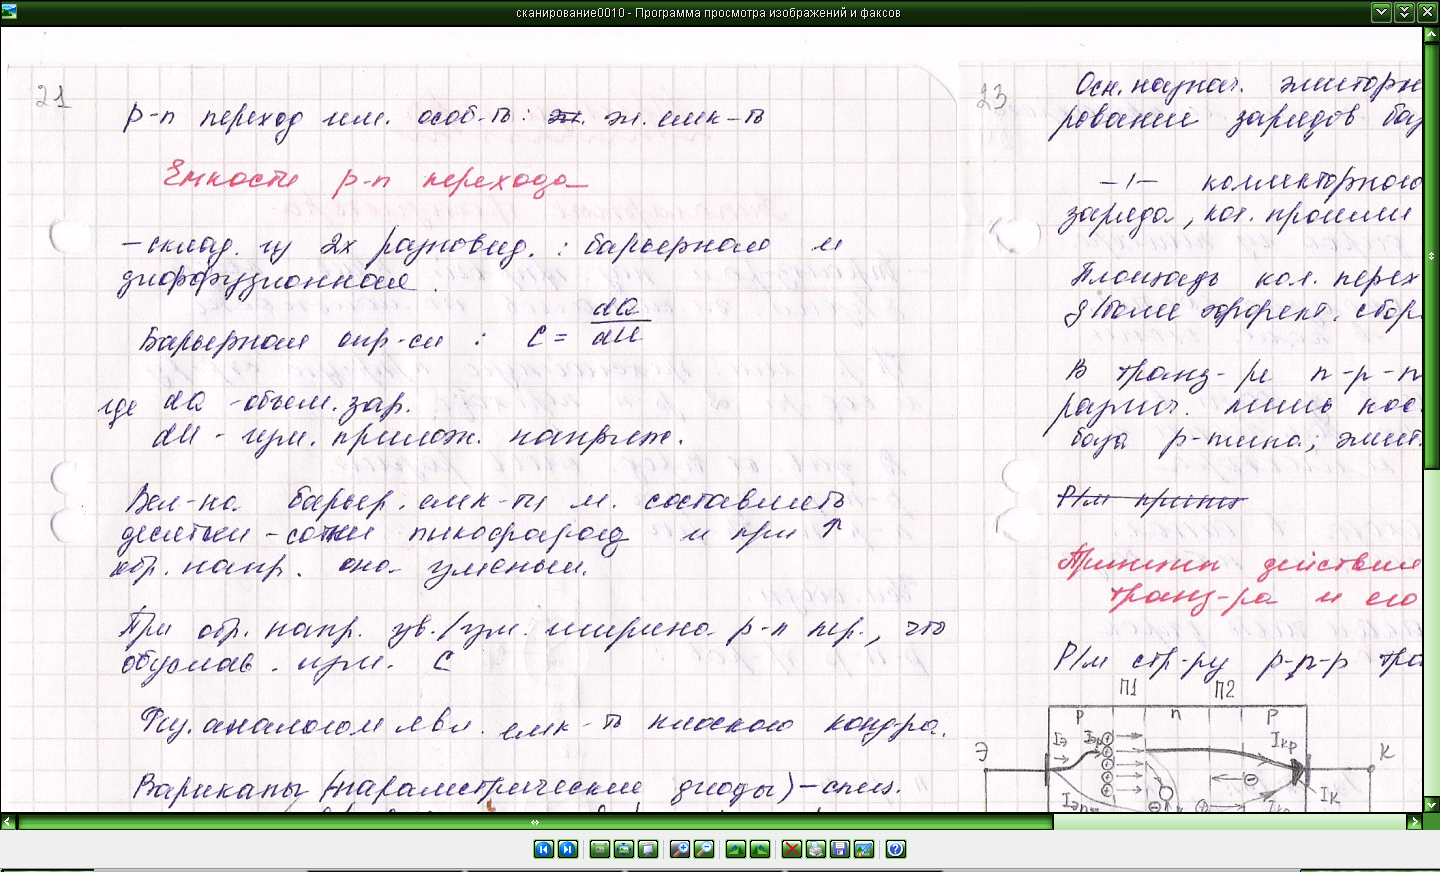 сканирование0010 - Программа просмотра изображений и факсов
21
p-n переход им. особ-ть: эл. емк-ть
Емкости p-n перехода
– склад. из 2х разновид. : барьерная и
диффузионная.
Барьерная опр-ся : C = dQ
dU
где dQ - объем. зар.
dU - изм. прилож. напряж.
Вел-на барьер. емк-ти м. составлять
десятки - сотни пикофарад и при ↑
обр. напр. она уменьш.
При обр. напр. ув./ум. ширина p-n пер., что
обуслав. изм. C
Физ. аналогом явл. емк-ть плоского конд-ра.
Варикапы (параметрические диоды) – спец.
23
Осн. назнач. эмиторн
рование зарядов баз
–॥– коллекторного
заряда, кот. прошли
Площадь кол. перех
д/более эффект. сбор
В транз-ре n-p-n
различ. лишь
база p-типа; эмит.
Р/м принц
Принцип действия
транз-ра и его
Р/м стр-ру p-n-p тра
П1 П2
p n p
Э Iэ Iэр Iкр К
Iэn Iк